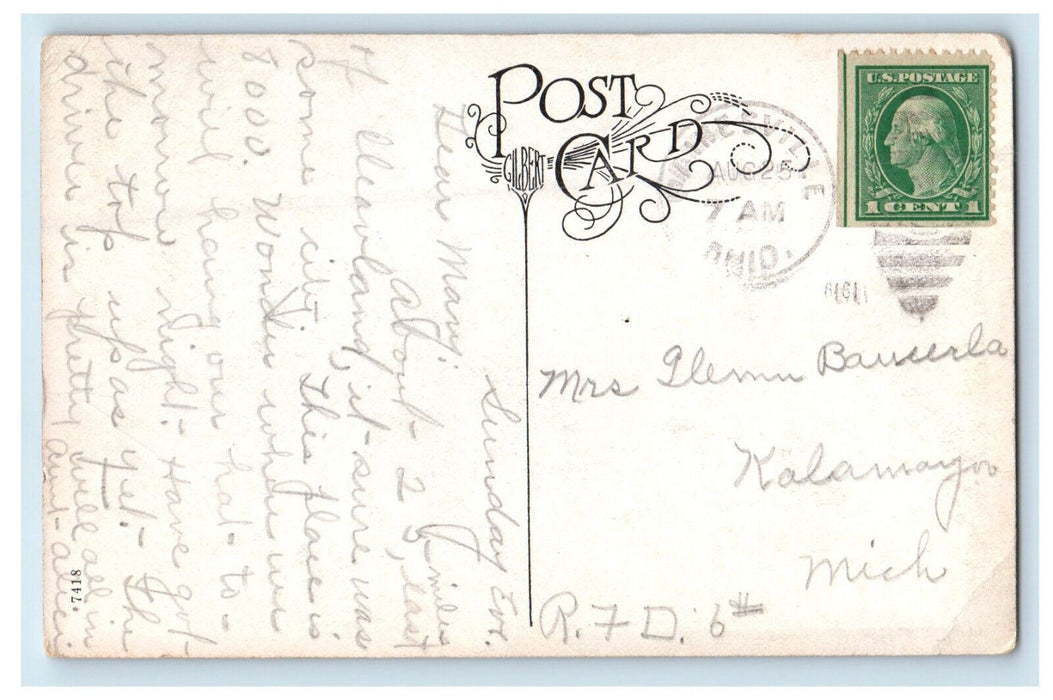 POST
CARD
GILBERT
AUG 25
7 AM
OHIO.
U.S. POSTAGE
1 CENT 1
Sunday Eve.
Dear Mary:
About 25 miles
east
of Cleaveland, it sure was
some city This place is
8000. Wonder where we
will hang our hat to-
morrow night. Have got
the top up as yet. The
driver is pretty well all in
Mrs Glenn
Kalamazoo
Mich
R.F.D. 6#
7418